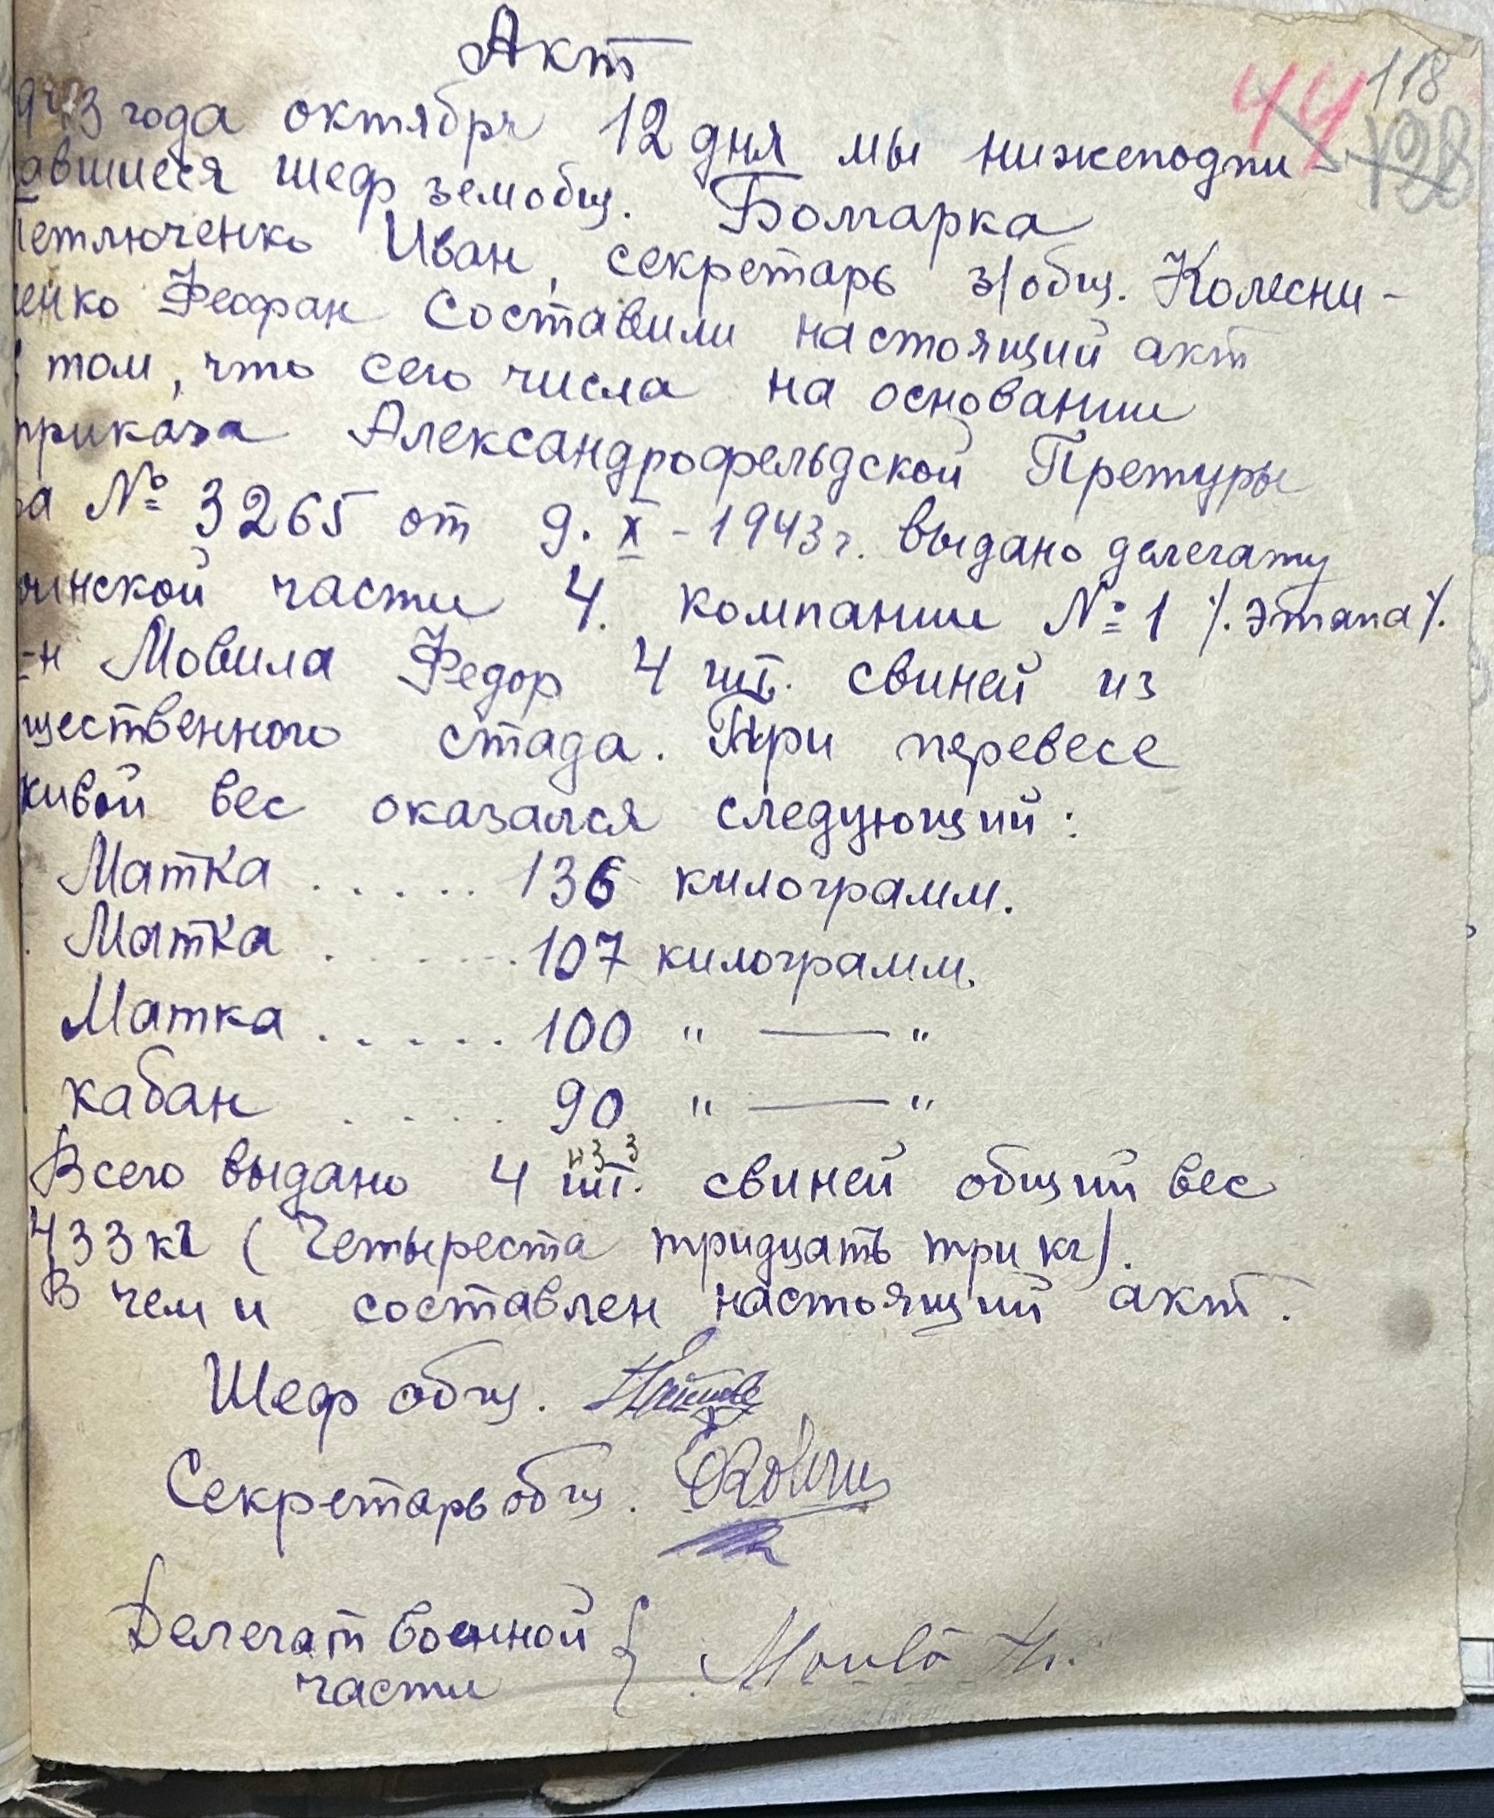 Акт
118
44
128
943 года октября 12 дня мы нижеподпи-
авшиеся шеф земобщ. Болгарка
Петлюченко Иван, секретарь з/общ. Колесни-
енко Феофан составили настоящий акт
том, что сего числа на основании
приказа Александрофельдской Претуры
за № 3265 от 9. X - 1943 г. выдано делегату
оинской части 4. компании № 1 ٪ Этапа ٪
-н Мовила Федор 4 шт. свиней из
щественного стада. При перевесе
живой вес оказался следующий:
Матка ..... 136 килограмм.
Матка ....... 107 килограмм.
Матка ...... 100 " — "
кабан ..... 90 " — "
433
Всего выдано 4 шт. свиней общий вес
433 кг (Четыреста тридцать три кг).
В чем и составлен настоящий акт.
Шеф общ.
Секретарь общ.
Делегат военной {
части